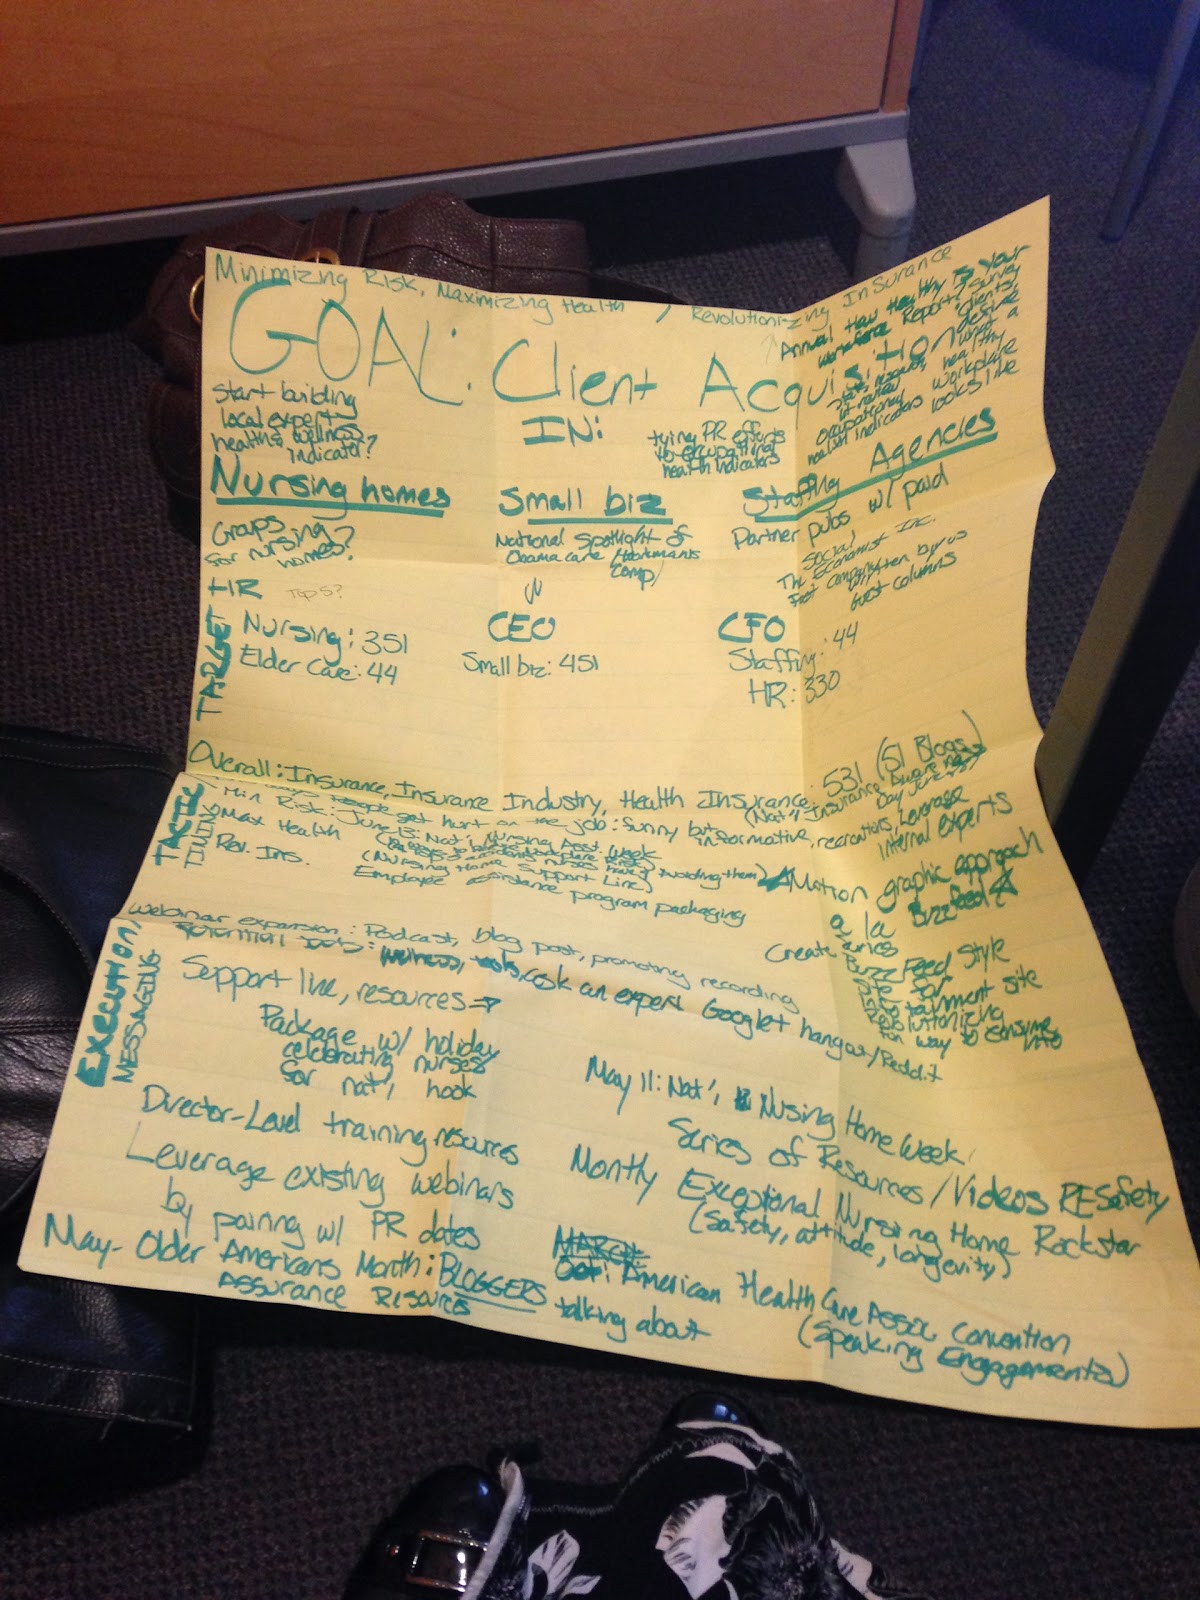 Minimizing Risk, Maximizing Health, Revolutionizing Insurance
GOAL: Client Acquisition
IN:
Start building
local expert
health & wellness
indicator?
tying PR efforts
to occupational
health indicators
Annual How Healthy Is Your
workforce Report: Survey
clients,
desire
what a
healthy
workplace
looks like
occupational
health indicators
Nursing homes
Small biz
Staffing Agencies
Groups
for nursing?
homes?
National Spotlight of
Obamacare
comp
Partner pubs w/ paid
social
The Economist Inc.
Fast company written by us
Guest columns
TARGET
HR Top 5?
CEO
CFO
Nursing: 351
Elder Care: 44
Small biz: 451
Staffing: 44
HR: 330
Overall: Insurance, Insurance Industry, Health Insurance: 531 (51 Blogs)
TACTIC
TIMING
people get hurt on the job: funny but informative, recreations, Leverage
internal experts
(Nat'l Insurance Awareness
Day June
Min Risk: June 13: Nat'l Nursing Asst. Week
Max Health
Rev. Ins.
(Nursing Home Support Line)
Employee assistance program packaging
Motion graphic approach
a la Buzzfeed
Create
BuzzFeed Style
site for
tainment site
Revolutionizing
way to consume
info
EXECUTION/
MESSAGING
Webinar expansion: Podcast, blog post, promoting recording
Potential Tools: wellness, tools, ask an expert Google+ hangout/Reddit
Support line, resources →
Package w/ holiday
celebrating nurses
for nat'l hook
Director-Level training resources
Leverage existing webinars
by pairing w/ PR dates
May 11: Nat'l Nusing Home Week
Series of Resources/Videos RE Safety
Montly Exceptional Nursing Home Rockstar
(safety, attitude, longevity)
May- Older Americans Month: BLOGGERS talking about
Assurance Resources
MARCH
Oct: American Health Care Assoc. Convention
(Speaking Engagements)